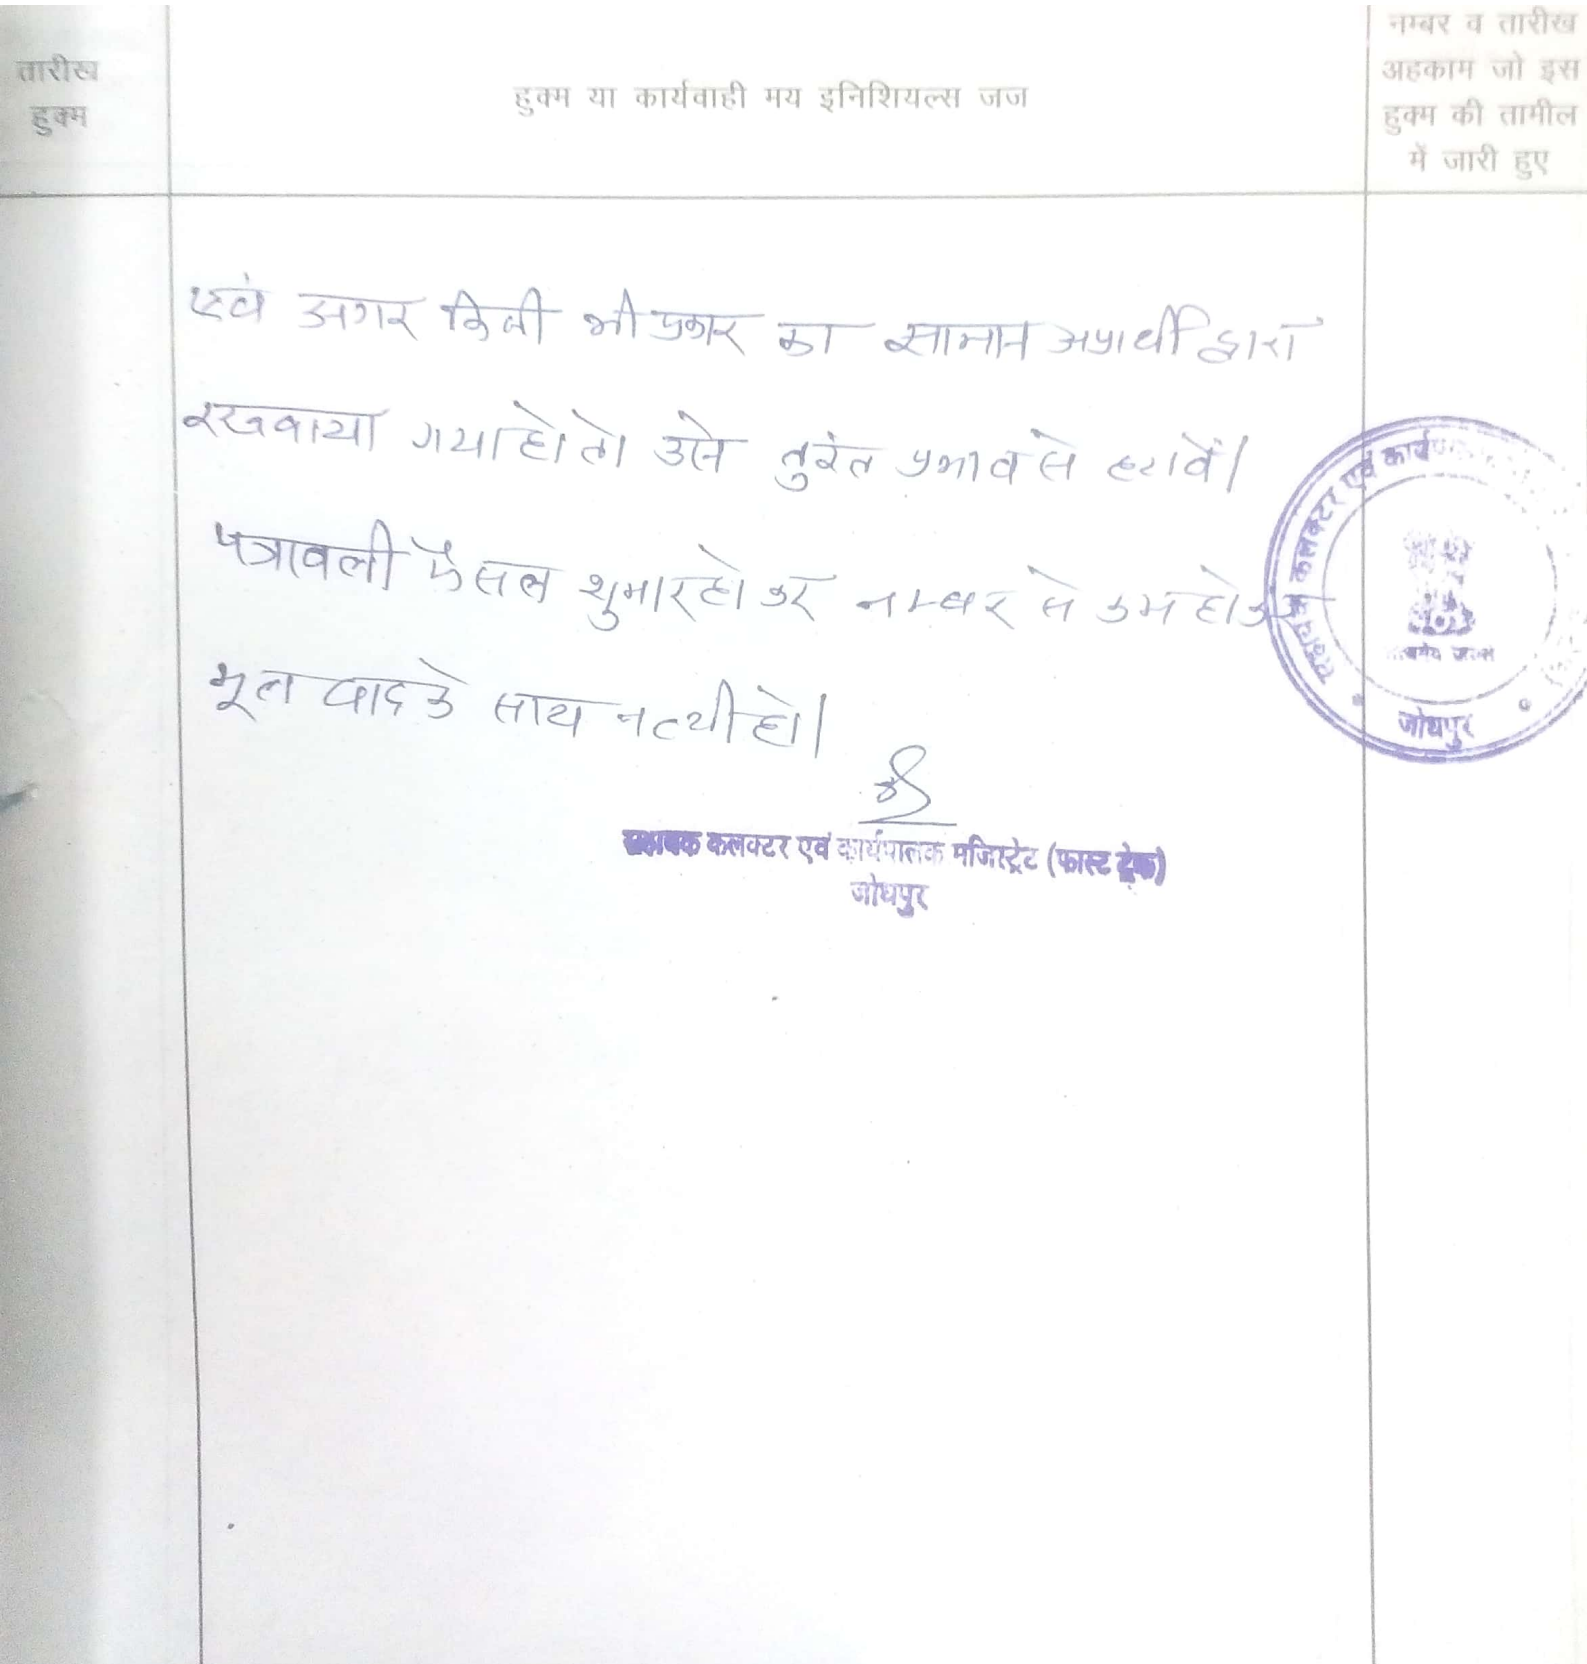 तारीख
हुक्म
हुक्म या कार्यवाही मय इनिशियल्स जज
नम्बर व तारीख
अहकाम जो इस
हुक्म की तामील
में जारी हुए
एवं अगर किसी भी प्रकार का सामान अप्रार्थी द्वारा
रखवाया गया हो तो उसे तुरंत प्रभाव से हटावें।
पत्रावली फैसल शुमार हो कर नम्बर से कम होकर
मूल वाद के साथ नत्थी हो।
सहायक कलक्टर एवं कार्यपालक मजिस्ट्रेट (फास्ट ट्रेक)
जोधपुर
सहायक कलक्टर एवं कार्यपा
सत्यमेव जयते
जोधपुर